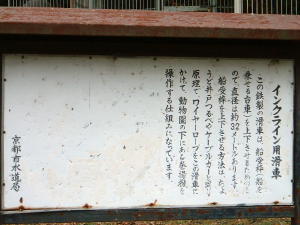 インクライン用滑車
この鉄製の滑車は、船受枠(船を
乗せる台車)を上下させるためのも
ので、直径は約3.2メートルあります。
船受枠を上下させる方法は、ちょ
うど井戸つるべやケーブルカーと同じ
原理で、ワイヤーロープをこの滑車に
かけて、動物園の下にある巻揚機を
操作する仕組みになっています。
京都市水道局